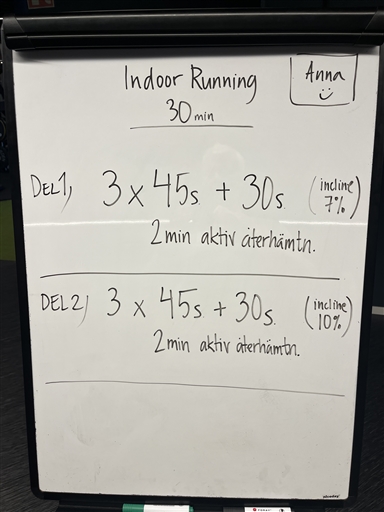 Indoor Running
30 min
Anna
DEL 1, 3 x 45s + 30s (incline 7%)
2 min aktiv återhämtn.
DEL 2, 3 x 45s + 30s. (incline 10%)
2 min aktiv återhämtn.